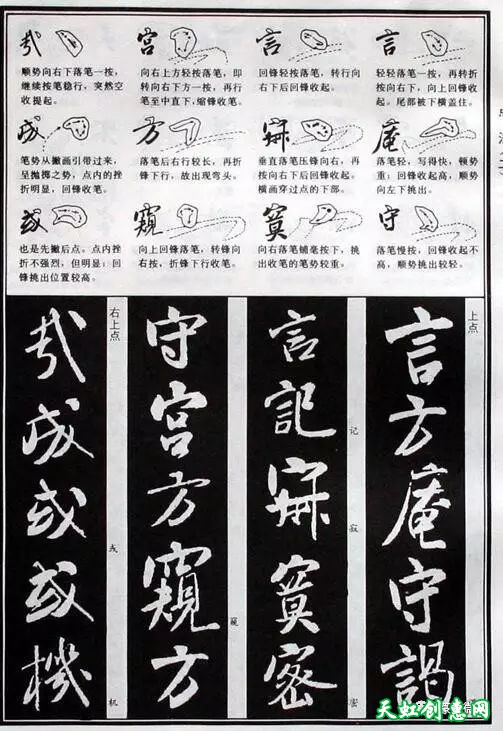 哉
宫
言
言
顺势向右下落笔一按，
继续按笔稳行，突然空
收提起。
向右上方轻按落笔，即
转向右下方一按，再行
笔至中直下，缩锋收笔。
回锋轻按落笔，转行向
右下后回锋收起。
轻轻落笔一按，再转折
按向右下，向上回锋收
起。尾部被下横盖住。
成
方
庵
笔势从撇画引带过来，
呈抛掷之势，点内的挫
折明显，回锋收笔。
落笔后右行较长，再折
锋下行，故出现弯头。
垂直落笔压锋向右，再
按向右下后回锋收起。
横画穿过点的下部。
落笔轻，写得快，顿势
重；回锋收起高，顺势
向左下挑出。
或
窥
寞
守
也是先撇后点。点内挫
折不强烈，但明显；回
锋挑出位置较高。
向上回锋落笔，转锋向
右按，折锋下行收笔。
向右落笔铺毫按下，挑
出收笔的笔势较重。
落笔慢按，回锋收起不
高，顺势挑出较轻。
上点
言方庵守謁
言記寞密
记
寂
密
守宫方窺方
窥
右上点
哉成或或機
机
天虹创意网